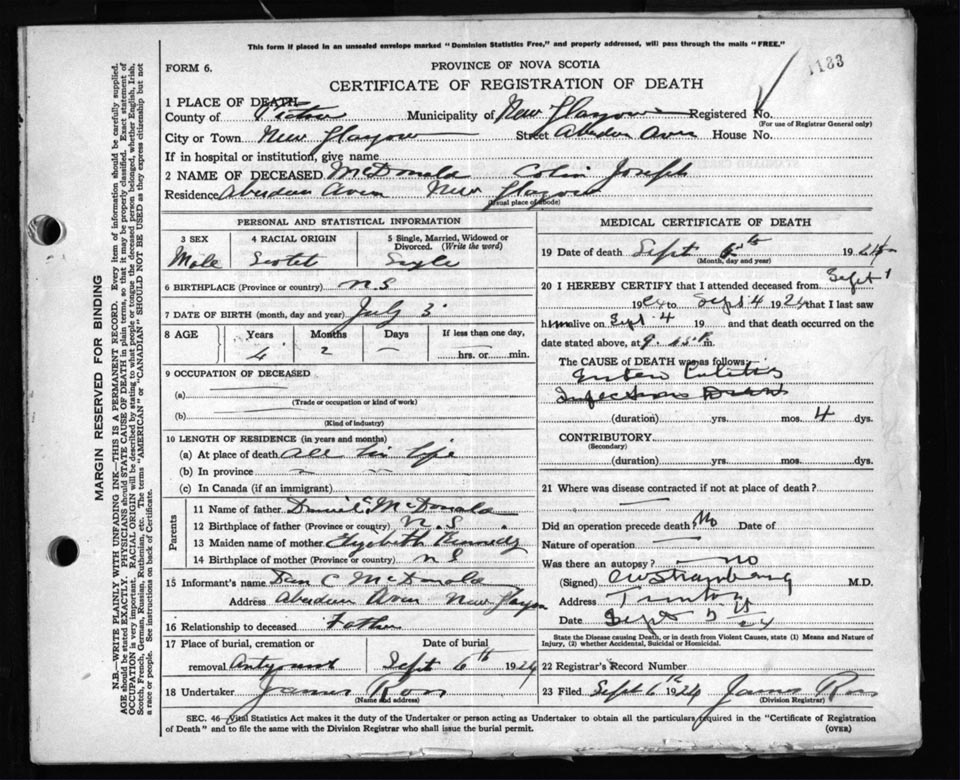 This form if placed in an unsealed envelope marked "Dominion Statistics Free," and properly addressed, will pass through the mails "FREE."
FORM 6.
PROVINCE OF NOVA SCOTIA
1183
CERTIFICATE OF REGISTRATION OF DEATH
1 PLACE OF DEATH
County of Pictou Municipality of New Glasgow Registered No.
(For use of Registrar General only)
City or Town New Glasgow Street Aberdeen Aven House No.
If in hospital or institution, give name
2 NAME OF DECEASED McDonald Colin Joseph
Residence Aberdeen Aven New Glasgow
(Usual place of abode)
PERSONAL AND STATISTICAL INFORMATION
3 SEX 4 RACIAL ORIGIN 5 Single, Married, Widowed or Divorced. (Write the word)
Male Scotch Single
6 BIRTHPLACE (Province or country) N.S
7 DATE OF BIRTH (month, day and year) July 3
8 AGE Years Months Days If less than one day,
4 2 hrs. or min.
9 OCCUPATION OF DECEASED
(a)
(Trade or occupation or kind of work)
(b)
(Kind of industry)
10 LENGTH OF RESIDENCE (in years and months)
(a) At place of death all his life
(b) In province
(c) In Canada (if an immigrant)
Parents
11 Name of father Daniel C McDonald
12 Birthplace of father (Province or country) N.S.
13 Maiden name of mother Elizabeth Kennedy
14 Birthplace of mother (Province or country) N S
15 Informant's name Dan C McDonald
Address Aberdeen Aven New Glasgow
16 Relationship to deceased Father
17 Place of burial, cremation or Date of burial
removal Sept 6th 1924
18 Undertaker James Ross
(Name and address)
MEDICAL CERTIFICATE OF DEATH
19 Date of death Sept 5th 1924
(Month, day and year)
20 I HEREBY CERTIFY that I attended deceased from Sept 1
1924 to Sept 4 1924 that I last saw
him alive on Sept 4 19 and that death occurred on
date stated above, at 9. m.
The CAUSE of DEATH was as follows:
Entero Colitis
Infectious
(duration) yrs. mos. 4 dys.
CONTRIBUTORY
(Secondary)
(duration) yrs. mos. dys.
21 Where was disease contracted if not at place of death?
Did an operation precede death? No Date of
Nature of operation
Was there an autopsy? no
(Signed) M.D.
Address Trenton
Date Sept 5th 24
State the Disease causing Death, or in death from Violent Causes, state (1) Means and Nature of Injury, (2) whether Accidental, Suicidal or Homicidal.
22 Registrar's Record Number
23 Filed Sept 6th 1924 James Ross
(Division Registrar)
SEC. 46—Vital Statistics Act makes it the duty of the Undertaker or person acting as Undertaker to obtain all the particulars required in the "Certificate of Registration
of Death" and to file the same with the Division Registrar who shall issue the burial permit.
(OVER)
MARGIN RESERVED FOR BINDING
N.B.—WRITE PLAINLY WITH UNFADING INK—THIS IS A PERMANENT RECORD. Every item of information should be carefully supplied.
AGE should be stated EXACTLY. PHYSICIANS should STATE CAUSE OF DEATH in plain terms, so that it may be properly classified. Exact statement of
OCCUPATION is very important. RACIAL ORIGIN will be described by stating to what people or tongue the deceased person belonged, whether English, Irish,
Scotch, French, German, Russian, Ruthenian, etc. The terms "AMERICAN" or "CANADIAN" SHOULD NOT BE USED as they express citizenship but not
a race or people. See instructions on back of Certificate.